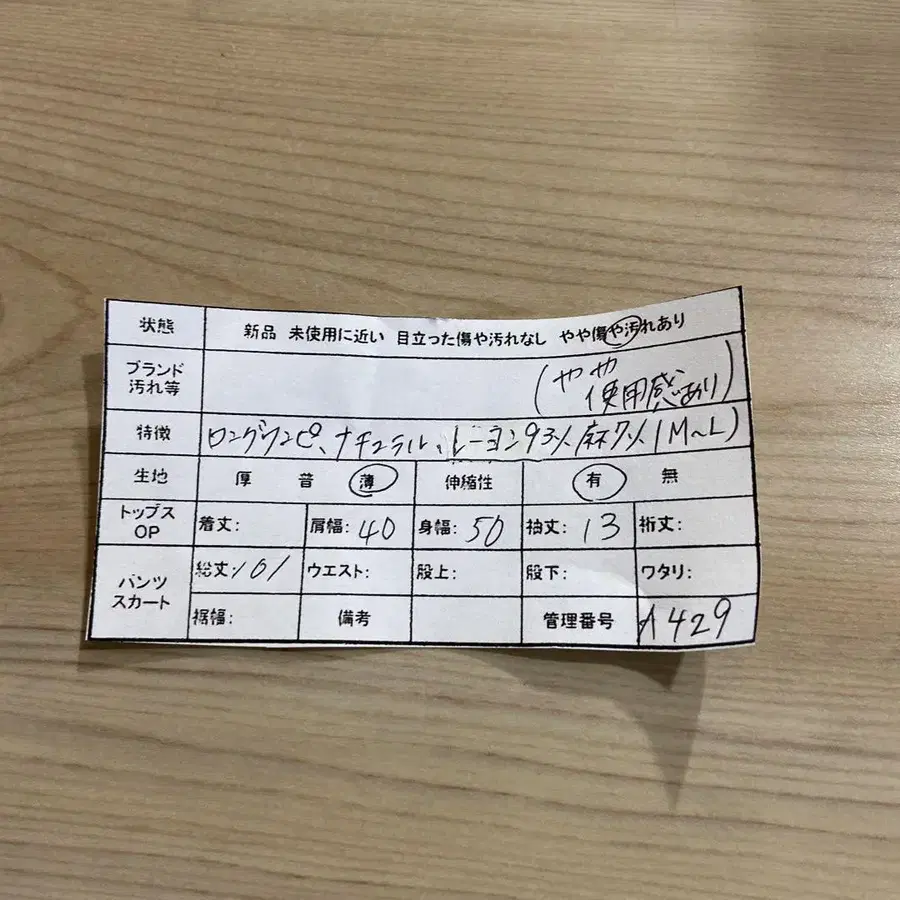 状態 新品 未使用に近い 目立った傷や汚れなし やや傷や汚れあり
ブランド
汚れ等
(やや
使用感あり)
特徴 ロングワンピ、ナチュラル、レーヨン93% 麻7% (M~L)
生地 厚 普 薄 伸縮性 有 無
トップス
OP
着丈: 肩幅: 40 身幅: 50 袖丈: 13 裄丈:
パンツ
スカート
総丈: 101 ウエスト: 股上: 股下: ワタリ:
裾幅: 備考 管理番号 A429